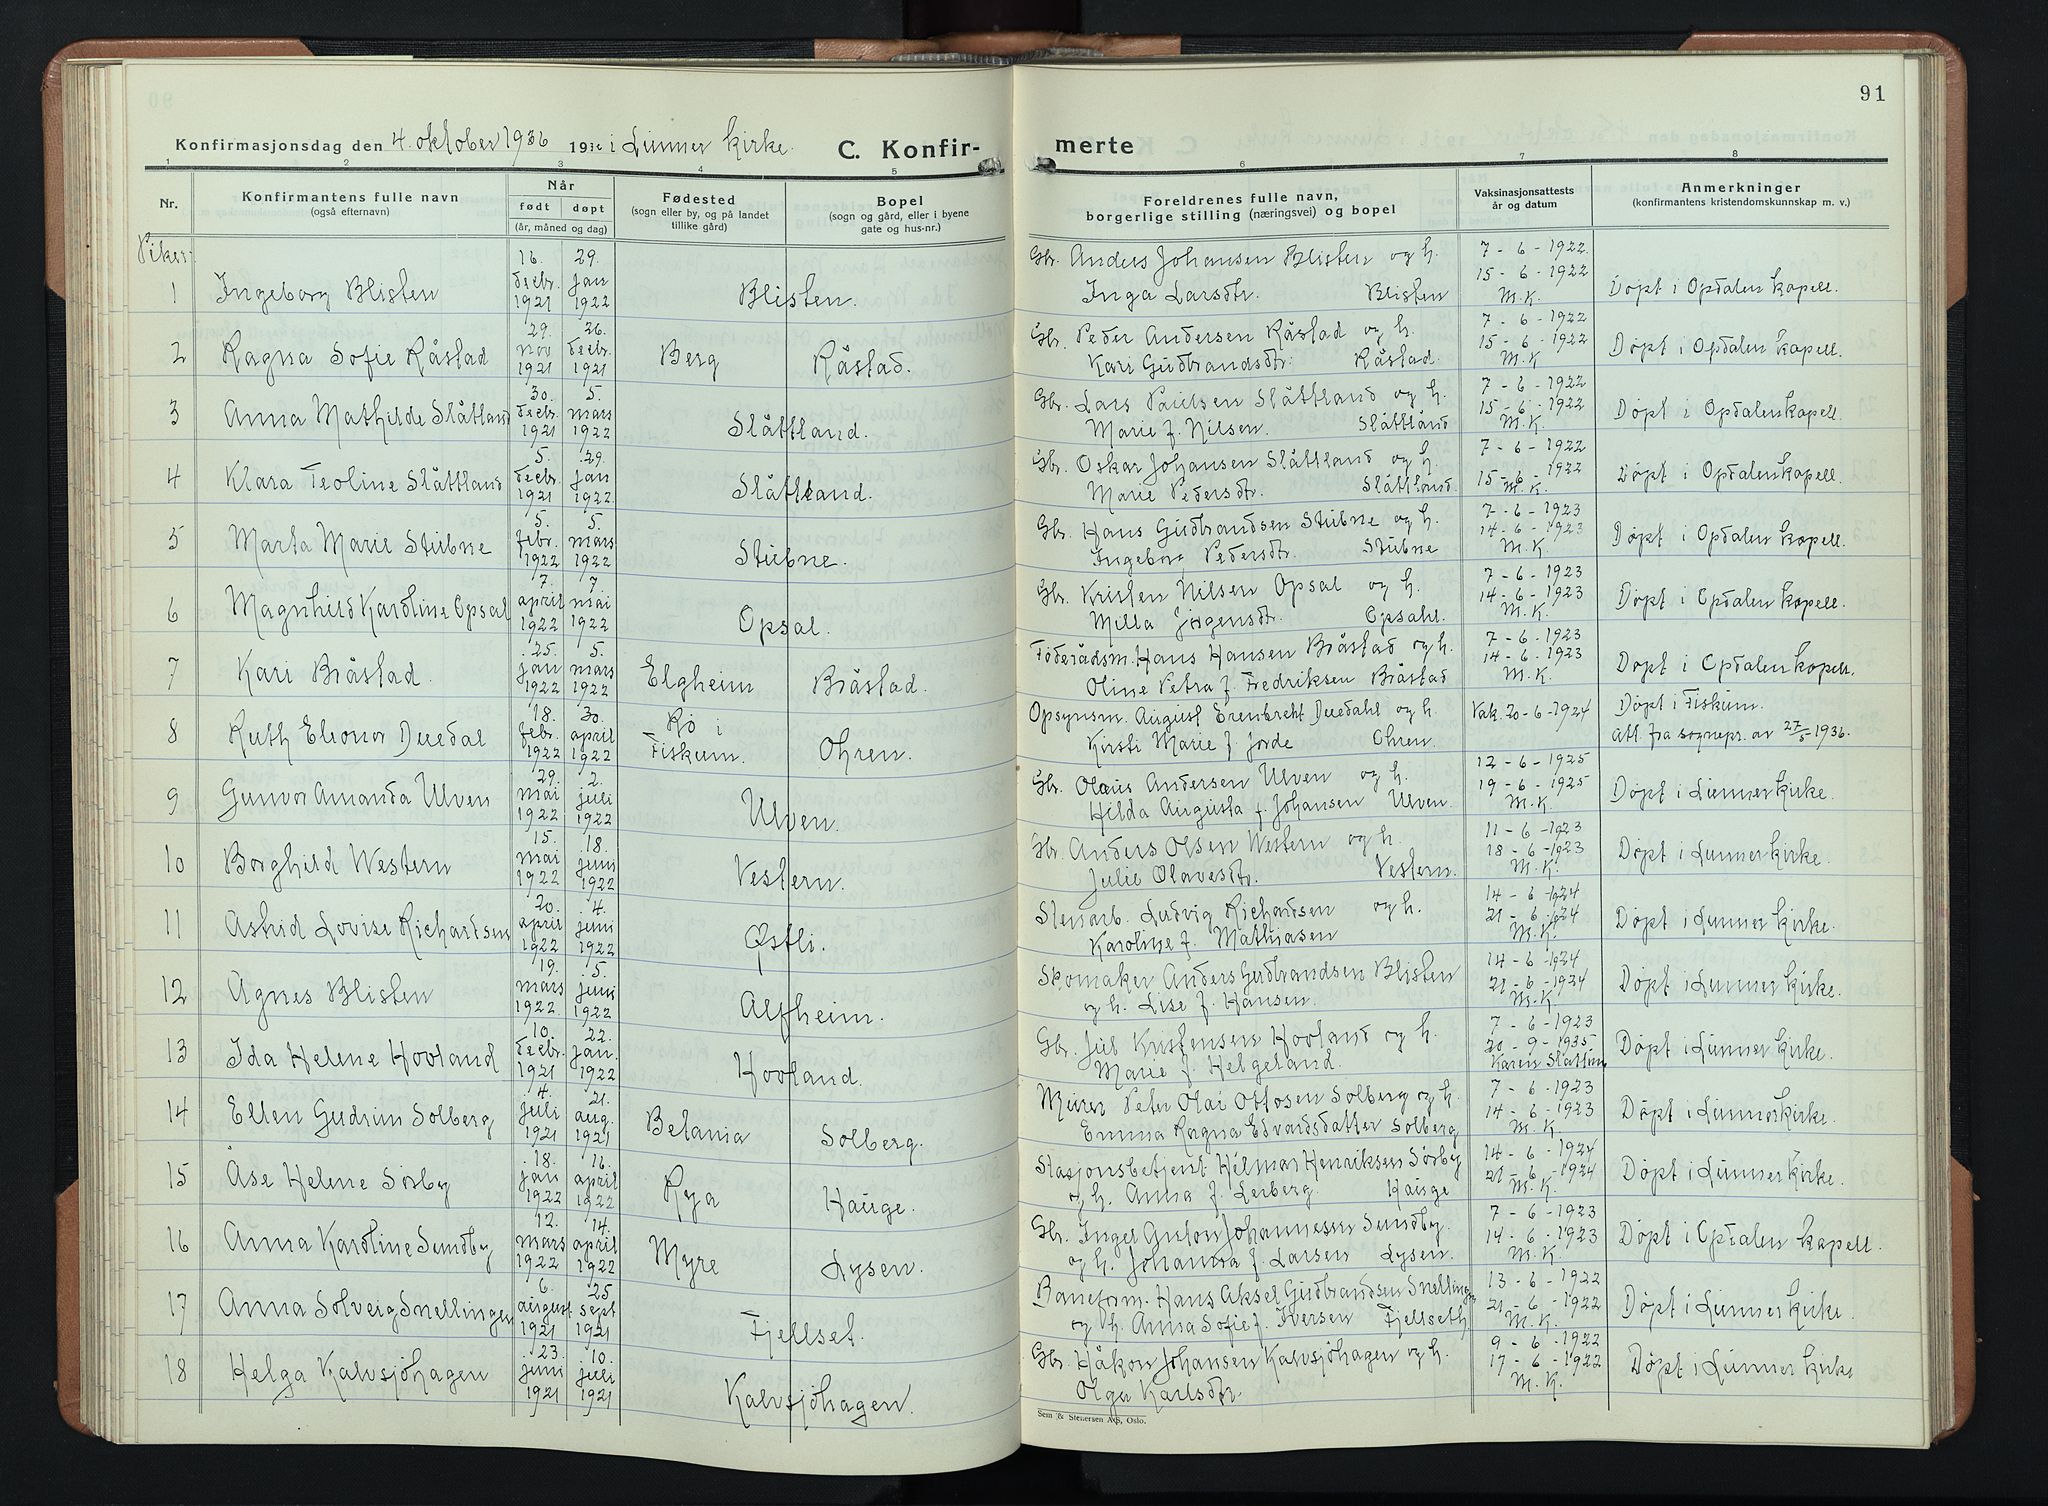 91
Konfirmasjonsdag den 4. oktober 1936 19 i Lunner kirke. C. Konfir- merte
1 2 3 4 5 6 7 8
Nr. Konfirmantens fulle navn (også efternavn) Når født døpt (år, måned og dag) Fødested (sogn eller by, og på landet tillike gård) Bopel (sogn og gård, eller i byene gate og hus-nr.) Foreldrenes fulle navn, borgerlige stilling (næringsvei) og bopel Vaksinasjonsattests år og datum Anmerkninger (konfirmantens kristendomskunnskap m. v.)
Piker:
16. 29. Gbr. Anders Johansen Blisten og h. 7-6-1922.
1 Ingeborg Blisten decbr. jan Blisten. Inga Larsdtr. Blisten 15-6-1922 Døpt i Opdalen kapell.
1921 1922 M.K.
29. 26. Gbr. Peder Andersen Råstad og h. 7-6-1922
2 Ragna Sofie Råstad nov decbr. Berg Råstad. Kari Gudbrandsdtr. Råstad. 15-6-1922 Døpt i Opdalen kapell.
1921 1921 M.K.
30. 5. Gbr. Lars Paulsen Slåttland og h. 7-6-1922
3 Anna Mathilde Slåttland decbr. mars Slåttland. Marie f. Nilsen. Slåttland 15-6-1922 Døpt i Opdalen kapell.
1921 1922 M.K.
5. 29. Gbr. Oskar Johansen Slåttland og h. 7-6-1922
4 Klara Teoline Slåttland decbr. jan Slåttland. Marie Pedersdtr. Slåttland. 15-6-1922 Døpt i Opdalen kapell.
1921 1922. M.K.
5. 5. Gbr. Hans Gudbrandsen Stubne og h. 7-6-1923
5 Marta Marie Stubne febr. mars Stubne. Ingeborg Pedersdtr. Stubne 14-6-1923 Døpt i Opdalen kapell.
1922 1922 M.K.
7. 7 Gbr. Kristen Nilsen Opsal og h. 7-6-1923
6 Magnhild Karoline Opsal april mai Opsal. Milla Jørgensdtr. Opsahl. 14-6-1923 Døpt i Opdalen kapell.
1922 1922 M.K.
25. 5. Føderådsm. Hans Hansen Bråstad og h. 7-6-1923
7 Kari Bråstad. jan mars Elgheim Bråstad. Oline Petra f. Fredriksen Bråstad 14-6-1923 Døpt i Opdalen kapell.
1922 1922 M.K.
18. 30. Rø i Opsynsm. August Erenbrekt Duedahl og h. Vak. 20-6-1924 Døpt i Fiskum.
8 Ruth Eleonor Duedal febr. april Fiskum. Ohren. Kirsti Marie f. Jorde Ohren. Att. fra sognepr. av 27/5-1936.
1922 1922
29. 2. Gbr. Olaus Andersen Ulven og h. 12-6-1925
9 Gunvor Amanda Ulven mai juli Ulven. Hilda Augusta f. Johansen Ulven. 19-6-1925 Døpt i Lunner kirke.
1922 1922 M.K.
15. 18. Gbr. Anders Olsen Western og h. 11-6-1923
10 Borghild Western mai juni Vestern. Julie Olavesdtr. Vestern. 18-6-1923 Døpt i Lunner kirke.
1922 1922 M.K.
20. 4. Stenarb. Ludvig Richardsen og h. 14-6-1924
11 Astrid Lovise Richardsen april juni Østli. Karoline f. Mathiasen 21-6-1924 Døpt i Lunner kirke.
1922 1922 M.K.
19. 5. Skomaker Anders Gudbrandsen Blisten 14-6-1924
12 Agnes Blisten mars juni Alfheim. og h. Lise f. Hansen. 21-6-1924 Døpt i Lunner kirke.
1922. 1922 M.K.
10. 22. Gbr. Jul Kristensen Hovland og h. 7-6-1923
13 Ida Helene Hovland decbr. jan. Hovland. Marie f. Helgeland. 20-9-1935 Døpt i Lunner kirke.
1921 1922 Karen Slattum
4. 21. Murer Peter Olai Ottosen Solberg og h. 7-6-1923
14 Ellen Gudrun Solberg juli aug. Betania Solberg. Emma Ragna Edvardsdatter Solberg 14-6-1923 Døpt i Lunner kirke.
1921 1921 M.K.
18. 16. Stasjonsbetjent Hilmar Henriksen Sørby 14-6-1924
15 Åse Helene Sørby jan april Rya Hauge. og h. Anna f. Lerberg. Hauge 21-6-1924 Døpt i Lunner kirke.
1922 1922 M.K.
12. 14. Gbr. Ingel Anton Johannessen Sundby. 7-6-1923
16 Anna Karoline Sundby mars april Myre Lysen. og h. Johanna f. Larsen Lysen. 14-6-1923 Døpt i Opdalen kapell.
1922 1922 M.K.
6. 25 Baneform. Hans Aksel Gudbrandsen Snellingen 13-6-1922
17 Anna Solveig Snellingen august sept Fjellset. og h. Anna Sofie f. Iversen Fjellseth 21-6-1922 Døpt i Lunner kirke.
1921 1921 M.K.
23. 10. Gbr. Håkon Johansen Kalvsjøhagen og h. 9-6-1922
18 Helga Kalvsjøhagen juni juli Kalvsjøhagen. Olga Karlsdtr. 17-6-1922 Døpt i Lunner kirke
1921 1921 M.K.
Sem & Stenersen A/S, Oslo.